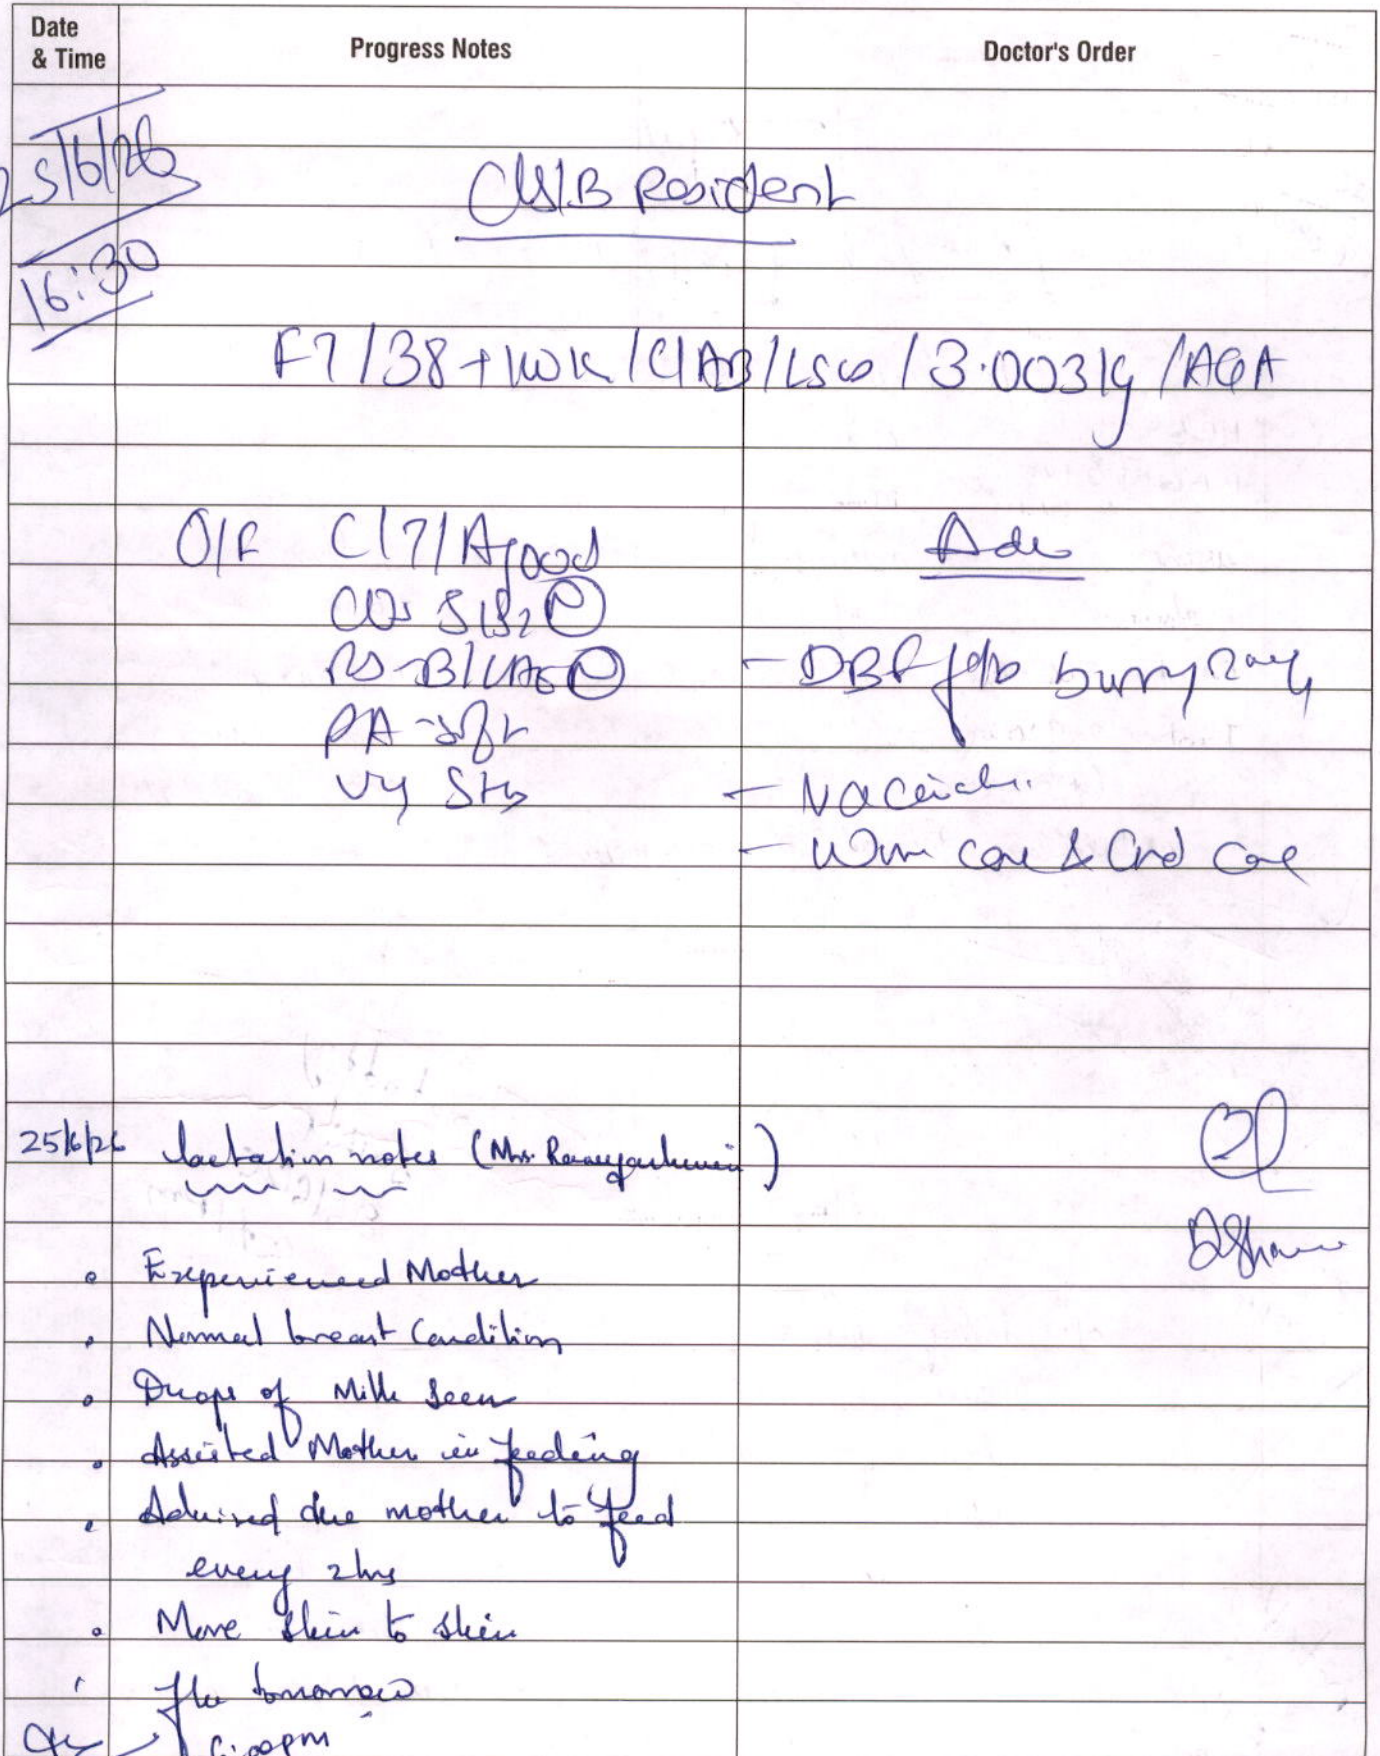 Date & Time Progress Notes Doctor's Order
25/6/26
C/S/B Resident
16:30
FT/38+1wk/CIAB/LSCS/3.003kg/AGA
O/E C/T/A good
CVS S1S2 N
RS-B/LAE
PA-soft
Vitally Stable
Adv
- DBF f/b burping
- Vaccination
- Warm care & Cord care
25/6/26 Lactation notes (Mrs.
• Experienced Mother
• Normal breast Condition
• Drops of Milk Seen
• Assisted Mother in feeding
• Advised the mother to feed
every 2hrs
• More skin to skin
• f/u tomorrow
6:00pm